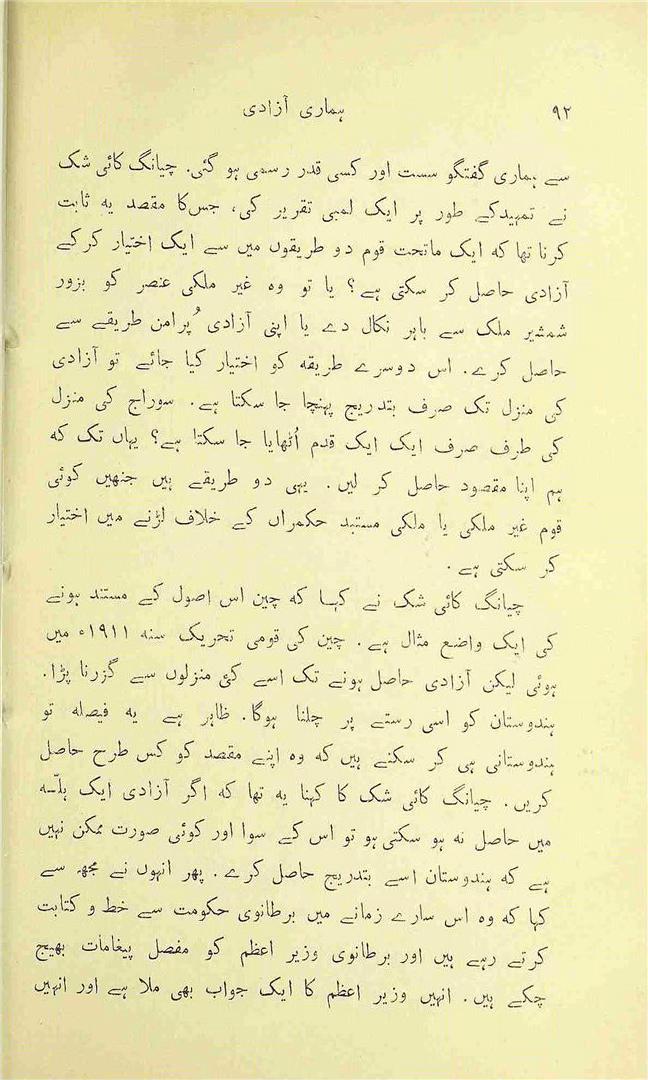 ۹۲ ہماری آزادی
سے ہماری گفتگو سست اور کسی قدر رسمی ہو گئی۔ چیانگ کائی شک
نے تمہید کے طور پر ایک لمبی تقریر کی، جس کا مقصد یہ ثابت
کرنا تھا کہ ایک ماتحت قوم دو طریقوں میں سے ایک اختیار کرکے
آزادی حاصل کر سکتی ہے؟ یا تو وہ غیر ملکی عنصر کو بزور
شمشیر ملک سے باہر نکال دے یا اپنی آزادی پُرامن طریقے سے
حاصل کرے۔ اس دوسرے طریقہ کو اختیار کیا جائے تو آزادی
کی منزل تک صرف بتدریج پہنچا جا سکتا ہے۔ سوراج کی منزل
کی طرف صرف ایک ایک قدم اُٹھایا جا سکتا ہے؟ یہاں تک کہ
ہم اپنا مقصود حاصل کر لیں۔ یہی دو طریقے ہیں جنھیں کوئی
قوم غیر ملکی یا ملکی مستبد حکمراں کے خلاف لڑنے میں اختیار
کر سکتی ہے۔
چیانگ کائی شک نے کہا کہ چین اس اصول کے مستند ہونے
کی ایک واضع مثال ہے۔ چین کی قومی تحریک سنہ ۱۹۱۱ء میں
ہوئی لیکن آزادی حاصل ہونے تک اسے کئی منزلوں سے گزرنا پڑا۔
ہندوستان کو اسی رستے پر چلنا ہوگا۔ ظاہر ہے یہ فیصلہ تو
ہندوستانی ہی کر سکتے ہیں کہ وہ اپنے مقصد کو کس طرح حاصل
کریں۔ چیانگ کائی شک کا کہنا یہ تھا کہ اگر آزادی ایک ہلّہ
میں حاصل نہ ہو سکتی ہو تو اس کے سوا اور کوئی صورت ممکن نہیں
ہے کہ ہندوستان اسے بتدریج حاصل کرے۔ پھر انہوں نے مجھ سے
کہا کہ وہ اس سارے زمانے میں برطانوی حکومت سے خط و کتابت
کرتے رہے ہیں اور برطانوی وزیر اعظم کو مفصل پیغامات بھیج
چکے ہیں۔ انہیں وزیر اعظم کا ایک جواب بھی ملا ہے اور انہیں